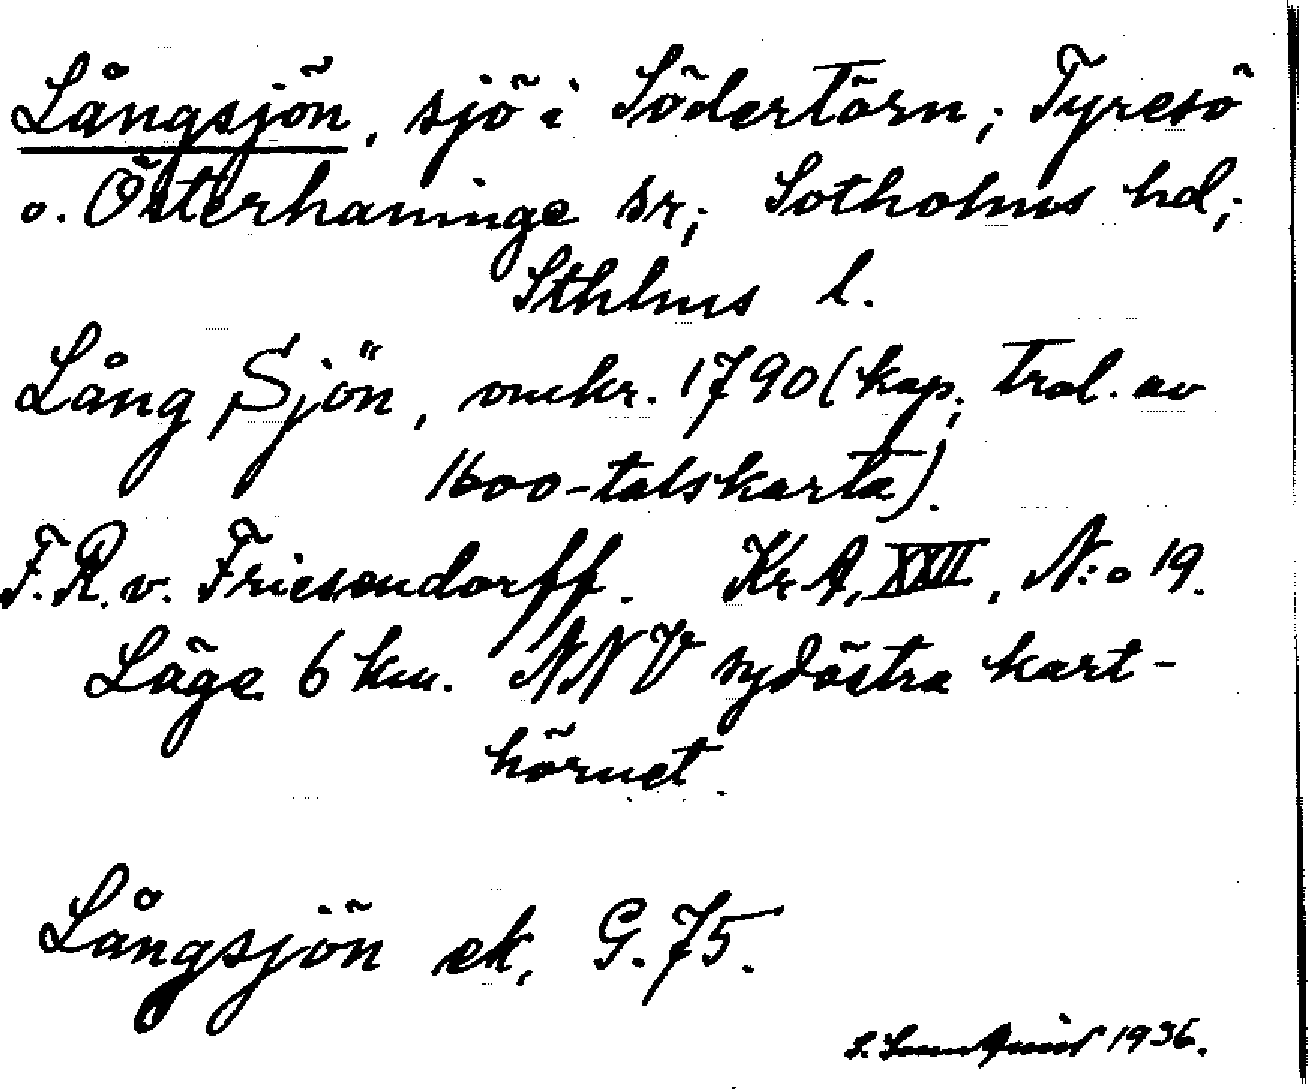 Långsjön, sjö i Södertörn; Tyresö
o. Österhaninge sr; Sotholms hd;
Sthlms l.
Lång Sjön, omkr. 1790 (kop. trol. av
1600-talskarta).
F. R. v. Friesendorff. Kr. A, XXII, N:o 19.
Läge 6 km. NNV sydöstra kart-
hörnet.
Långsjön ek. G. 75.
S. 1936.